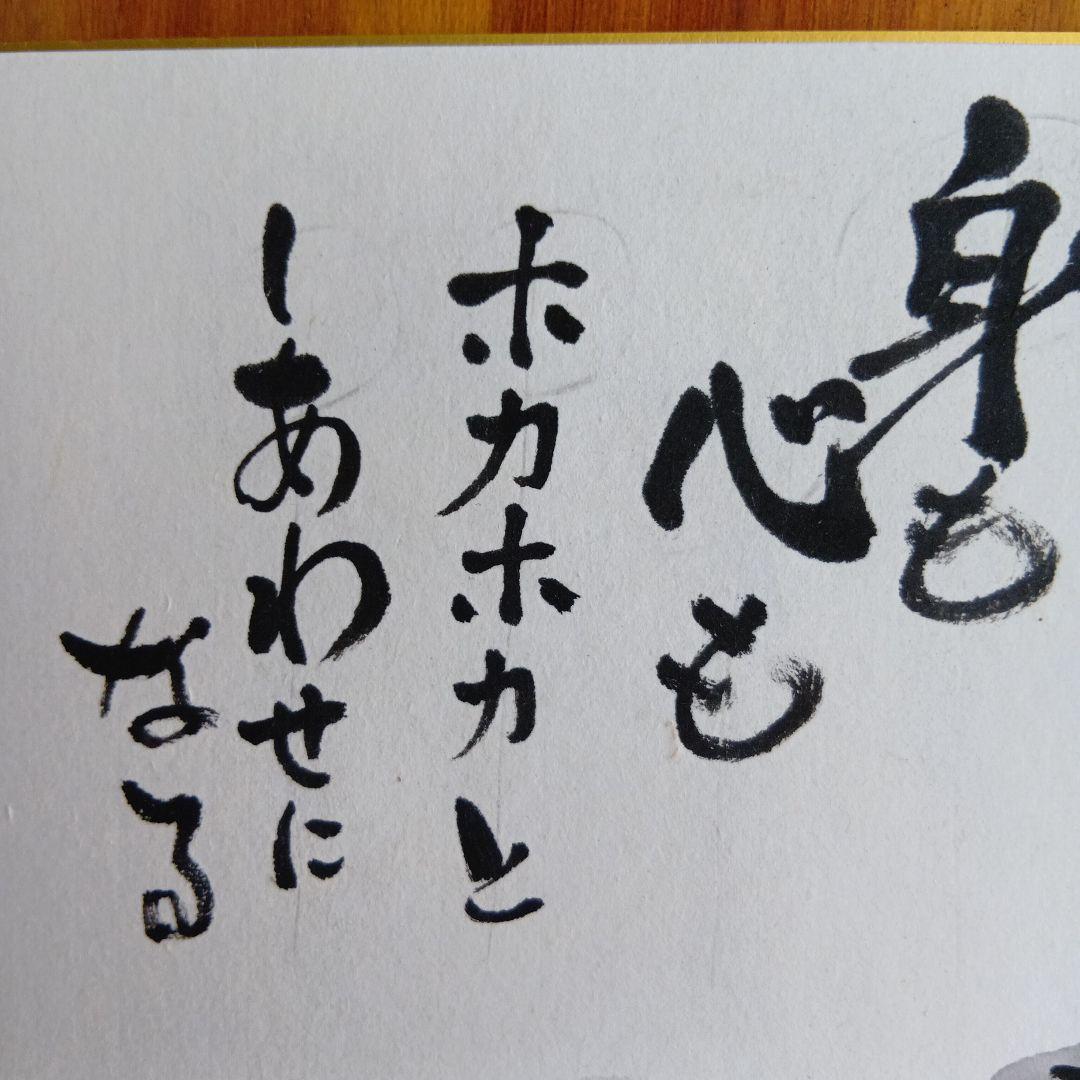 身も
心も
ホカホカと
しあわせに
なる